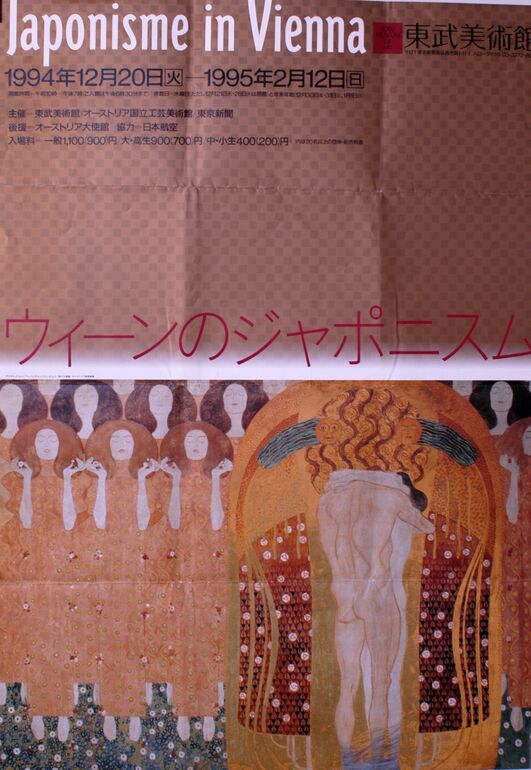 Japonisme in Vienna
東武美術館
1994年12月20日(火)—1995年2月12日(日)
主催—東武美術館/オーストリア国立工芸美術館/東京新聞
後援—オーストリア大使館 協力—日本航空
入場料—一般1,100(900)円/大・高生900(700)円/中・小生400(200)円
ウィーンのジャポニスム